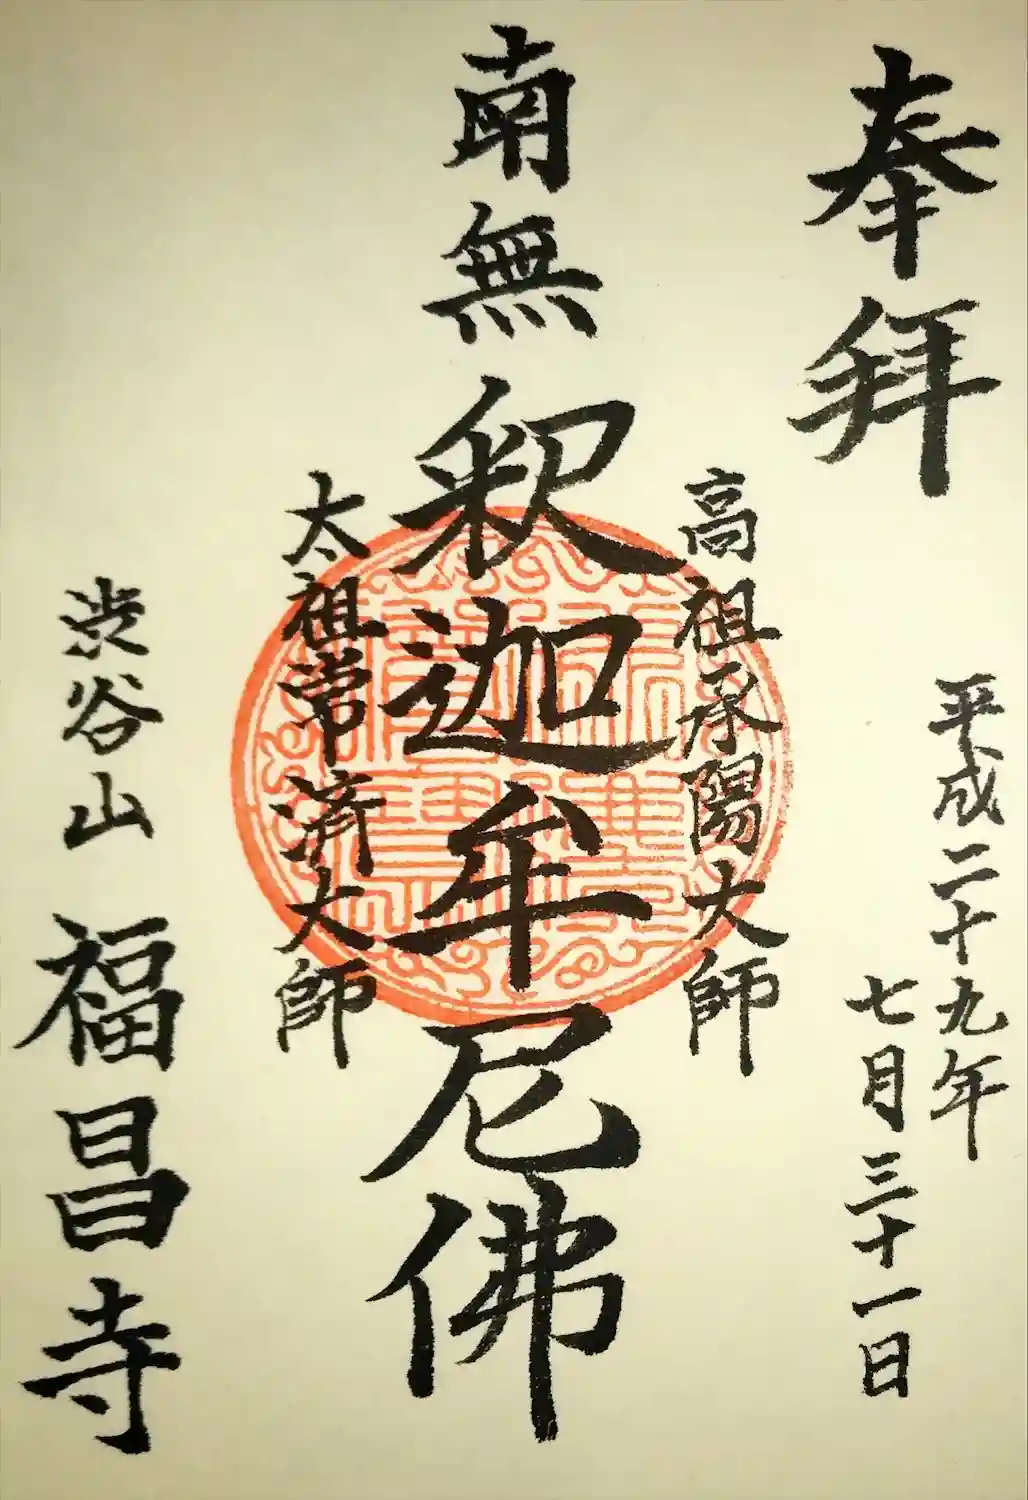 奉拜
平成二十九年
七月三十一日
高祖承陽大師
南無釈迦牟尼佛
太祖常済大師
渋谷山 福昌寺